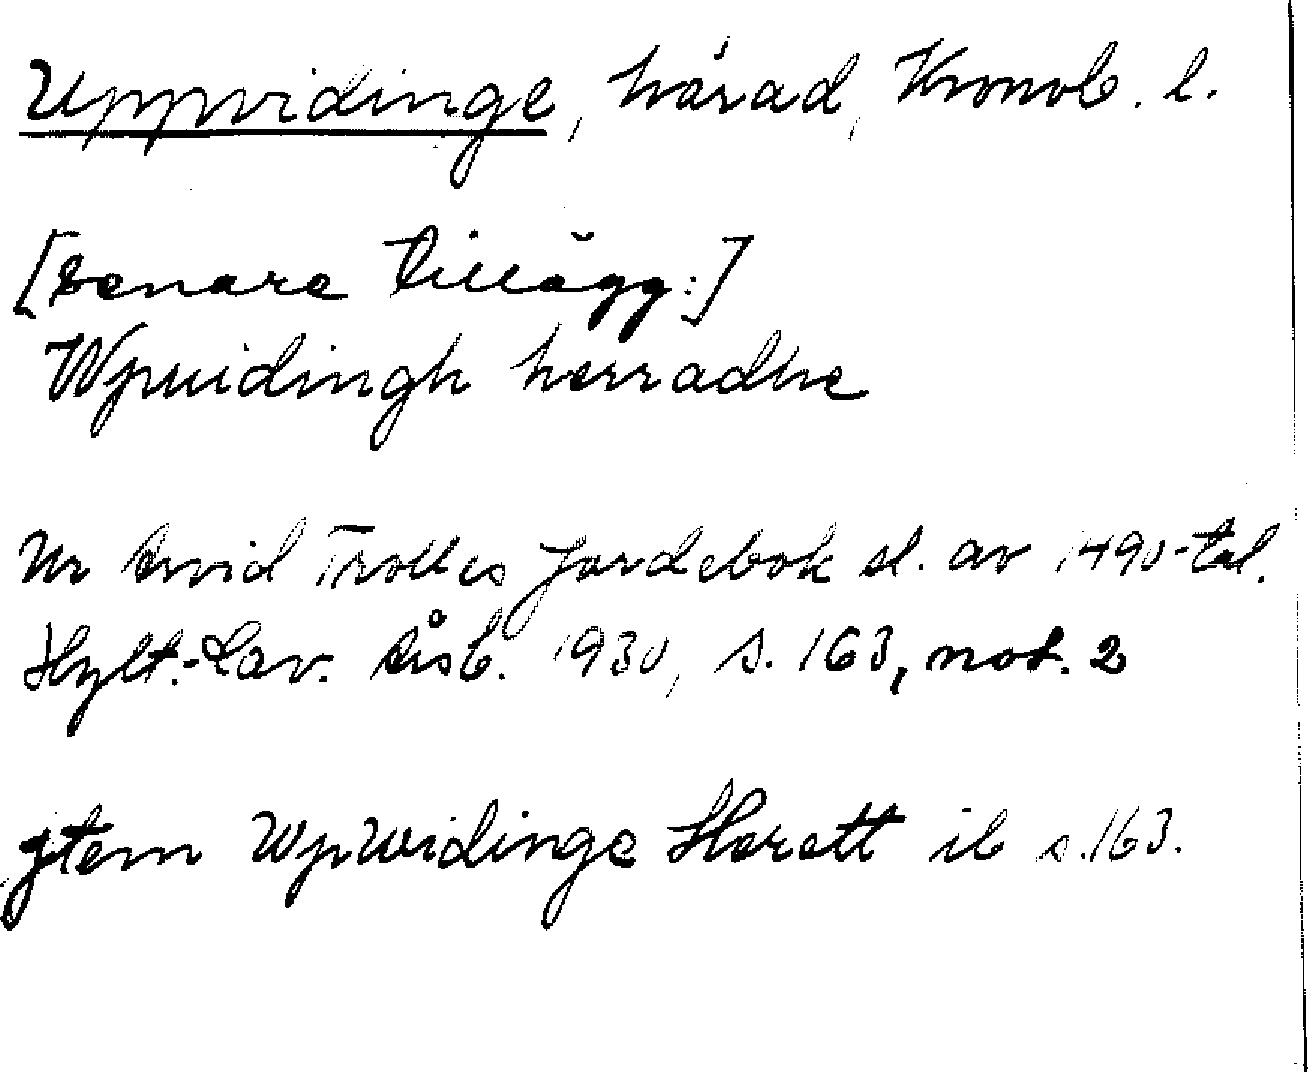 Uppvidinge, härad, Kronob. l.
[Senare tillägg:]
Wpuidingh herradhe
Ur Arvid Trolles jordebok sl. av 1490-tal.
Hylt.-Cav. Årsb. 1930, s. 163, not. 2
jtem WpWidinge Herett ib s. 163.